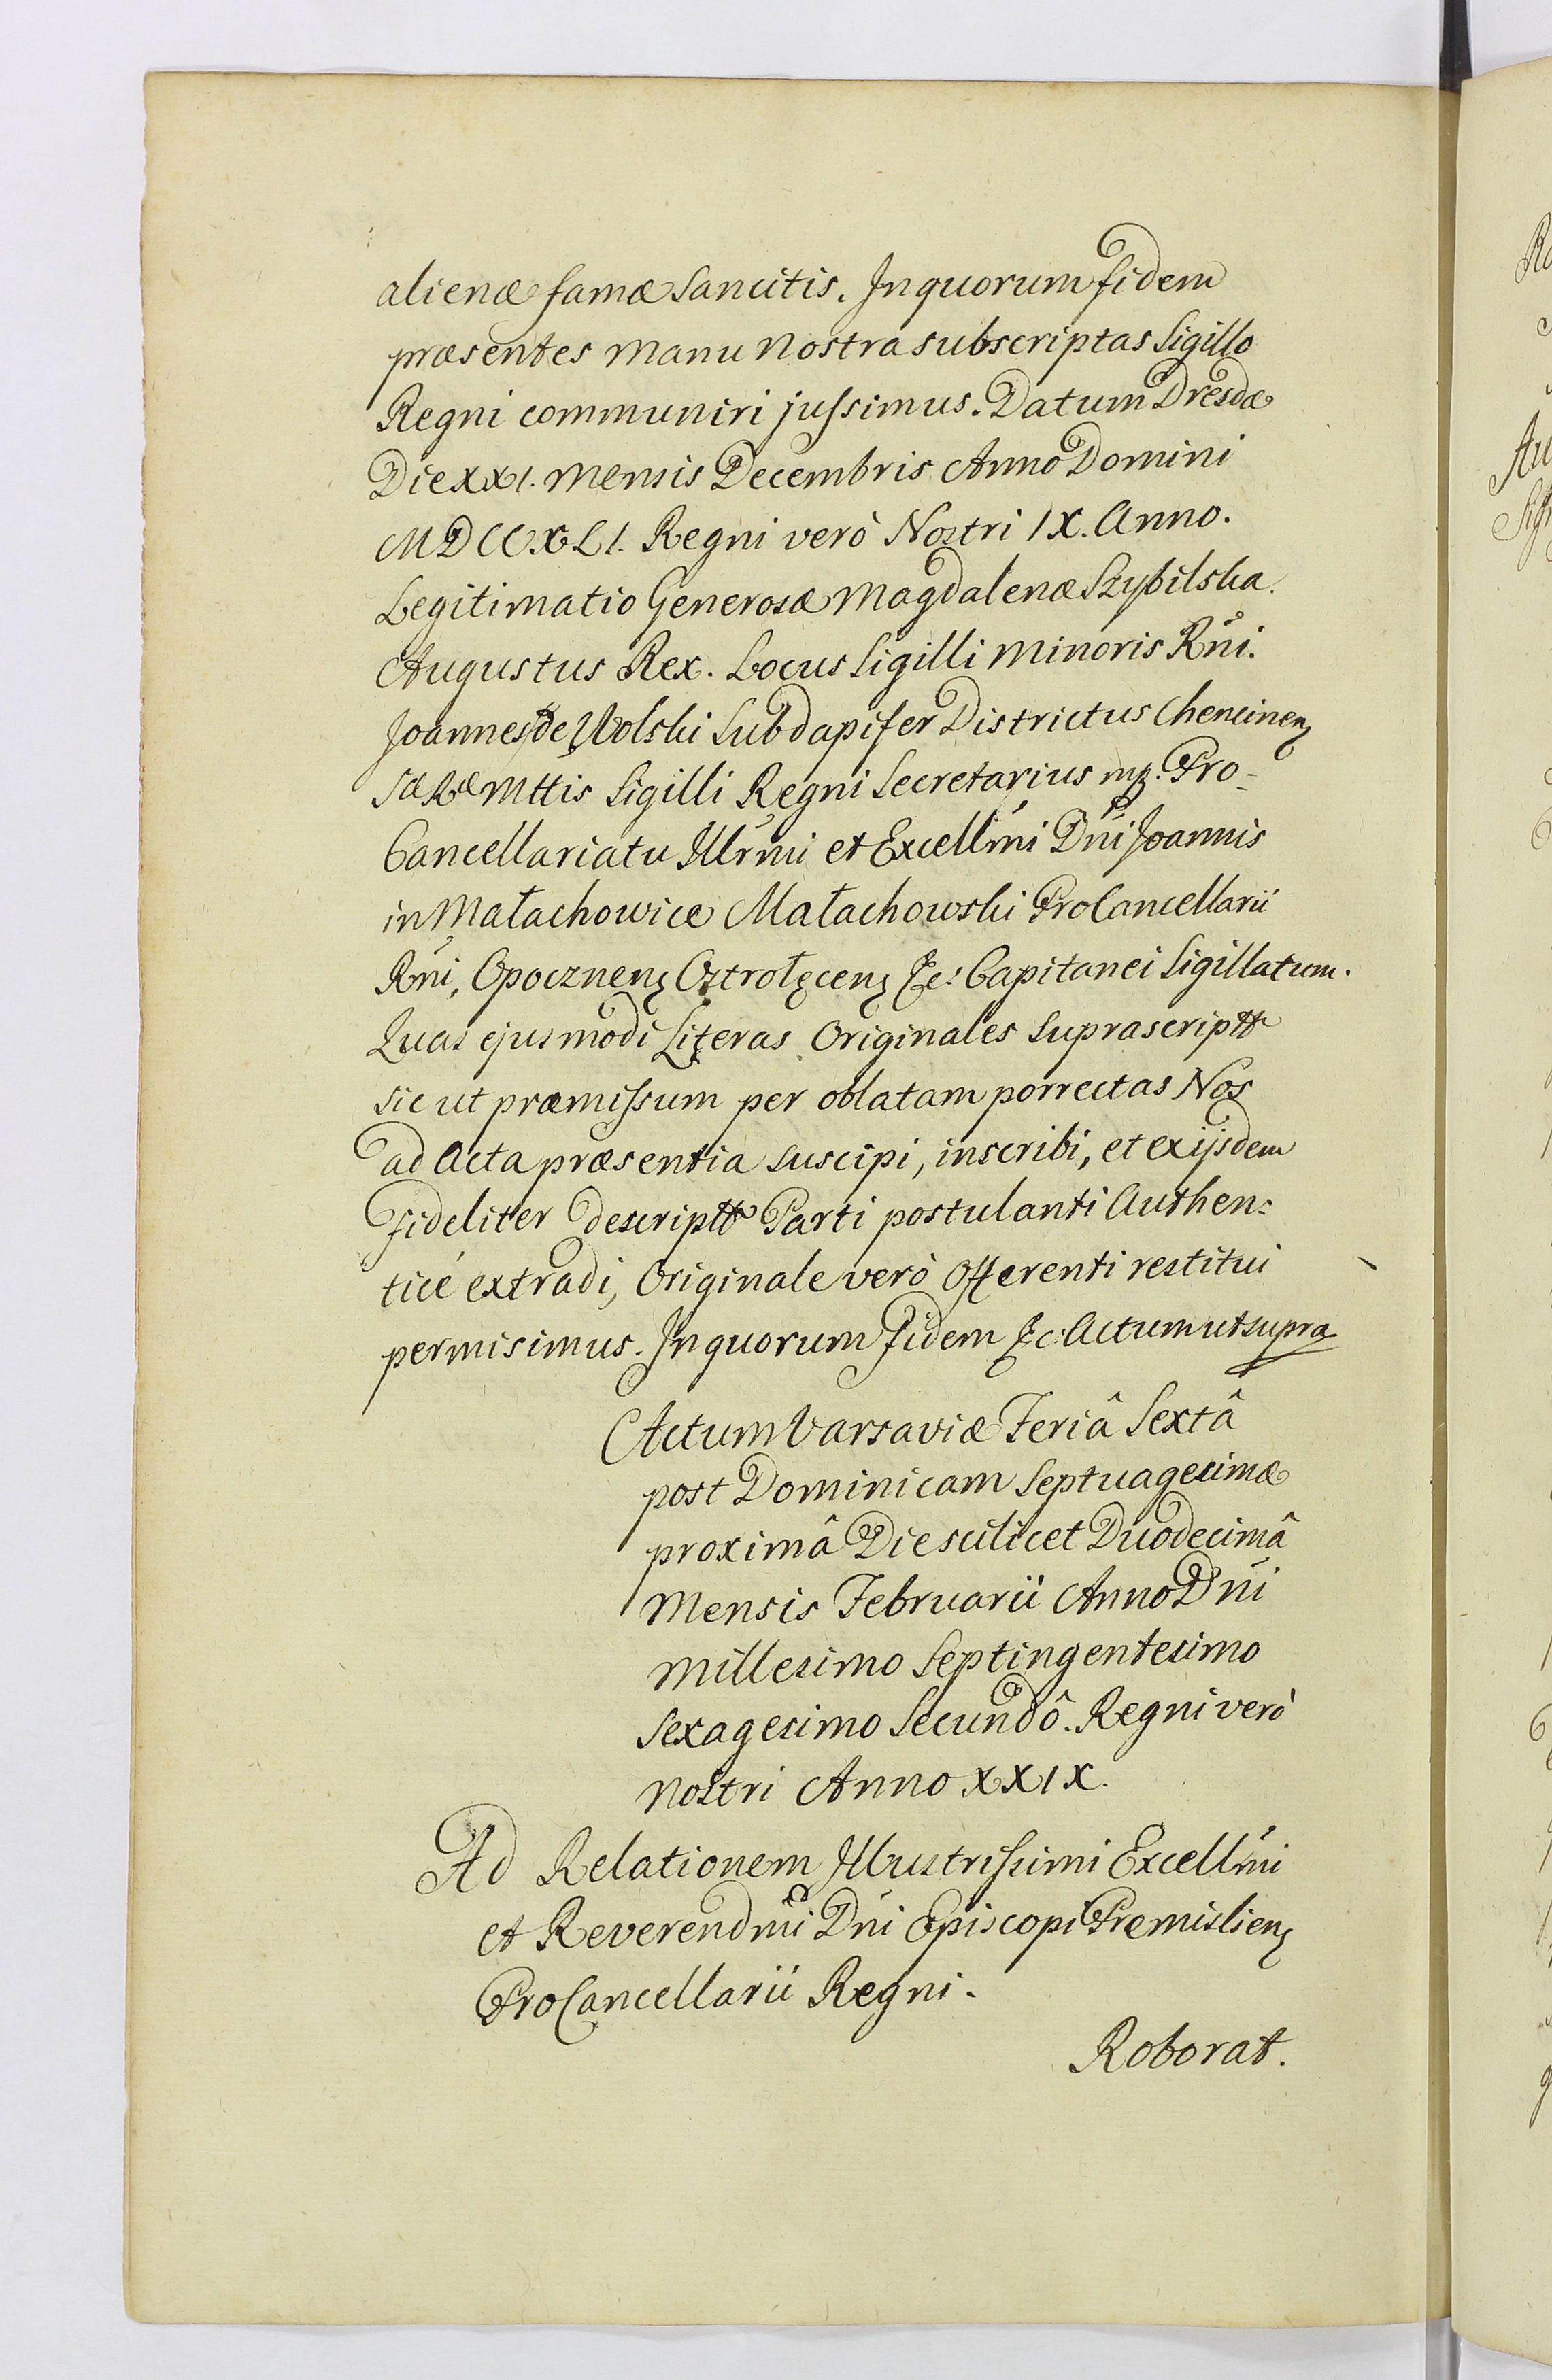 alienæ famæ Sancitis. In quorum fidem
præsentes Manu Nostra subscriptas Sigillo
Regni communiri jussimus. Datum Dresdæ
Die XXI. Mensis Decembris Anno Domini
MDCCXLI. Regni verò Nostri IX. Anno.
Legitimatio Generosæ Magdalenæ Szybilska.
Augustus Rex. Locus Sigilli Minoris Rńi.
Joannes de Wolski Subdapifer Districtus Chencinen̨
Sæ Ræ Mttis Sigilli Regni Secretarius mp. Pro-
Cancellariatu Illrmi et Excellm̃i Dńi Joannis
in Małachowice Małachowski ProCancellarii
Rńi, Opocznen̨ Ostrołęcen̨ &c: Capitanei Sigillatum.
Quas ejusmodi Literas Originales Suprascriptt
sic ut præmissum per oblatam porrectas Nos
ad Acta præsentia suscipi, inscribi, et ex ijsdem
fideliter descriptt Parti postulanti Authen:
ticé extradi, Originale verò Offerenti restitui
permisimus. In quorum fidem &c: Actum ut supra
Actum Varsaviæ Feriâ Sextâ
post Dominicam Septuagesimæ
proximâ Die scilicet Duodecimâ
Mensis Februarii Anno Dńi
Millesimo Septingentesimo
Sexagesimo Secundô. Regni verò
Nostri Anno XXIX.
Ad Relationem Illustrissimi Excellm̃i
et Reverendm̃i Dńi Episcopi Premislien̨
ProCancellarii Regni.
Roborat.